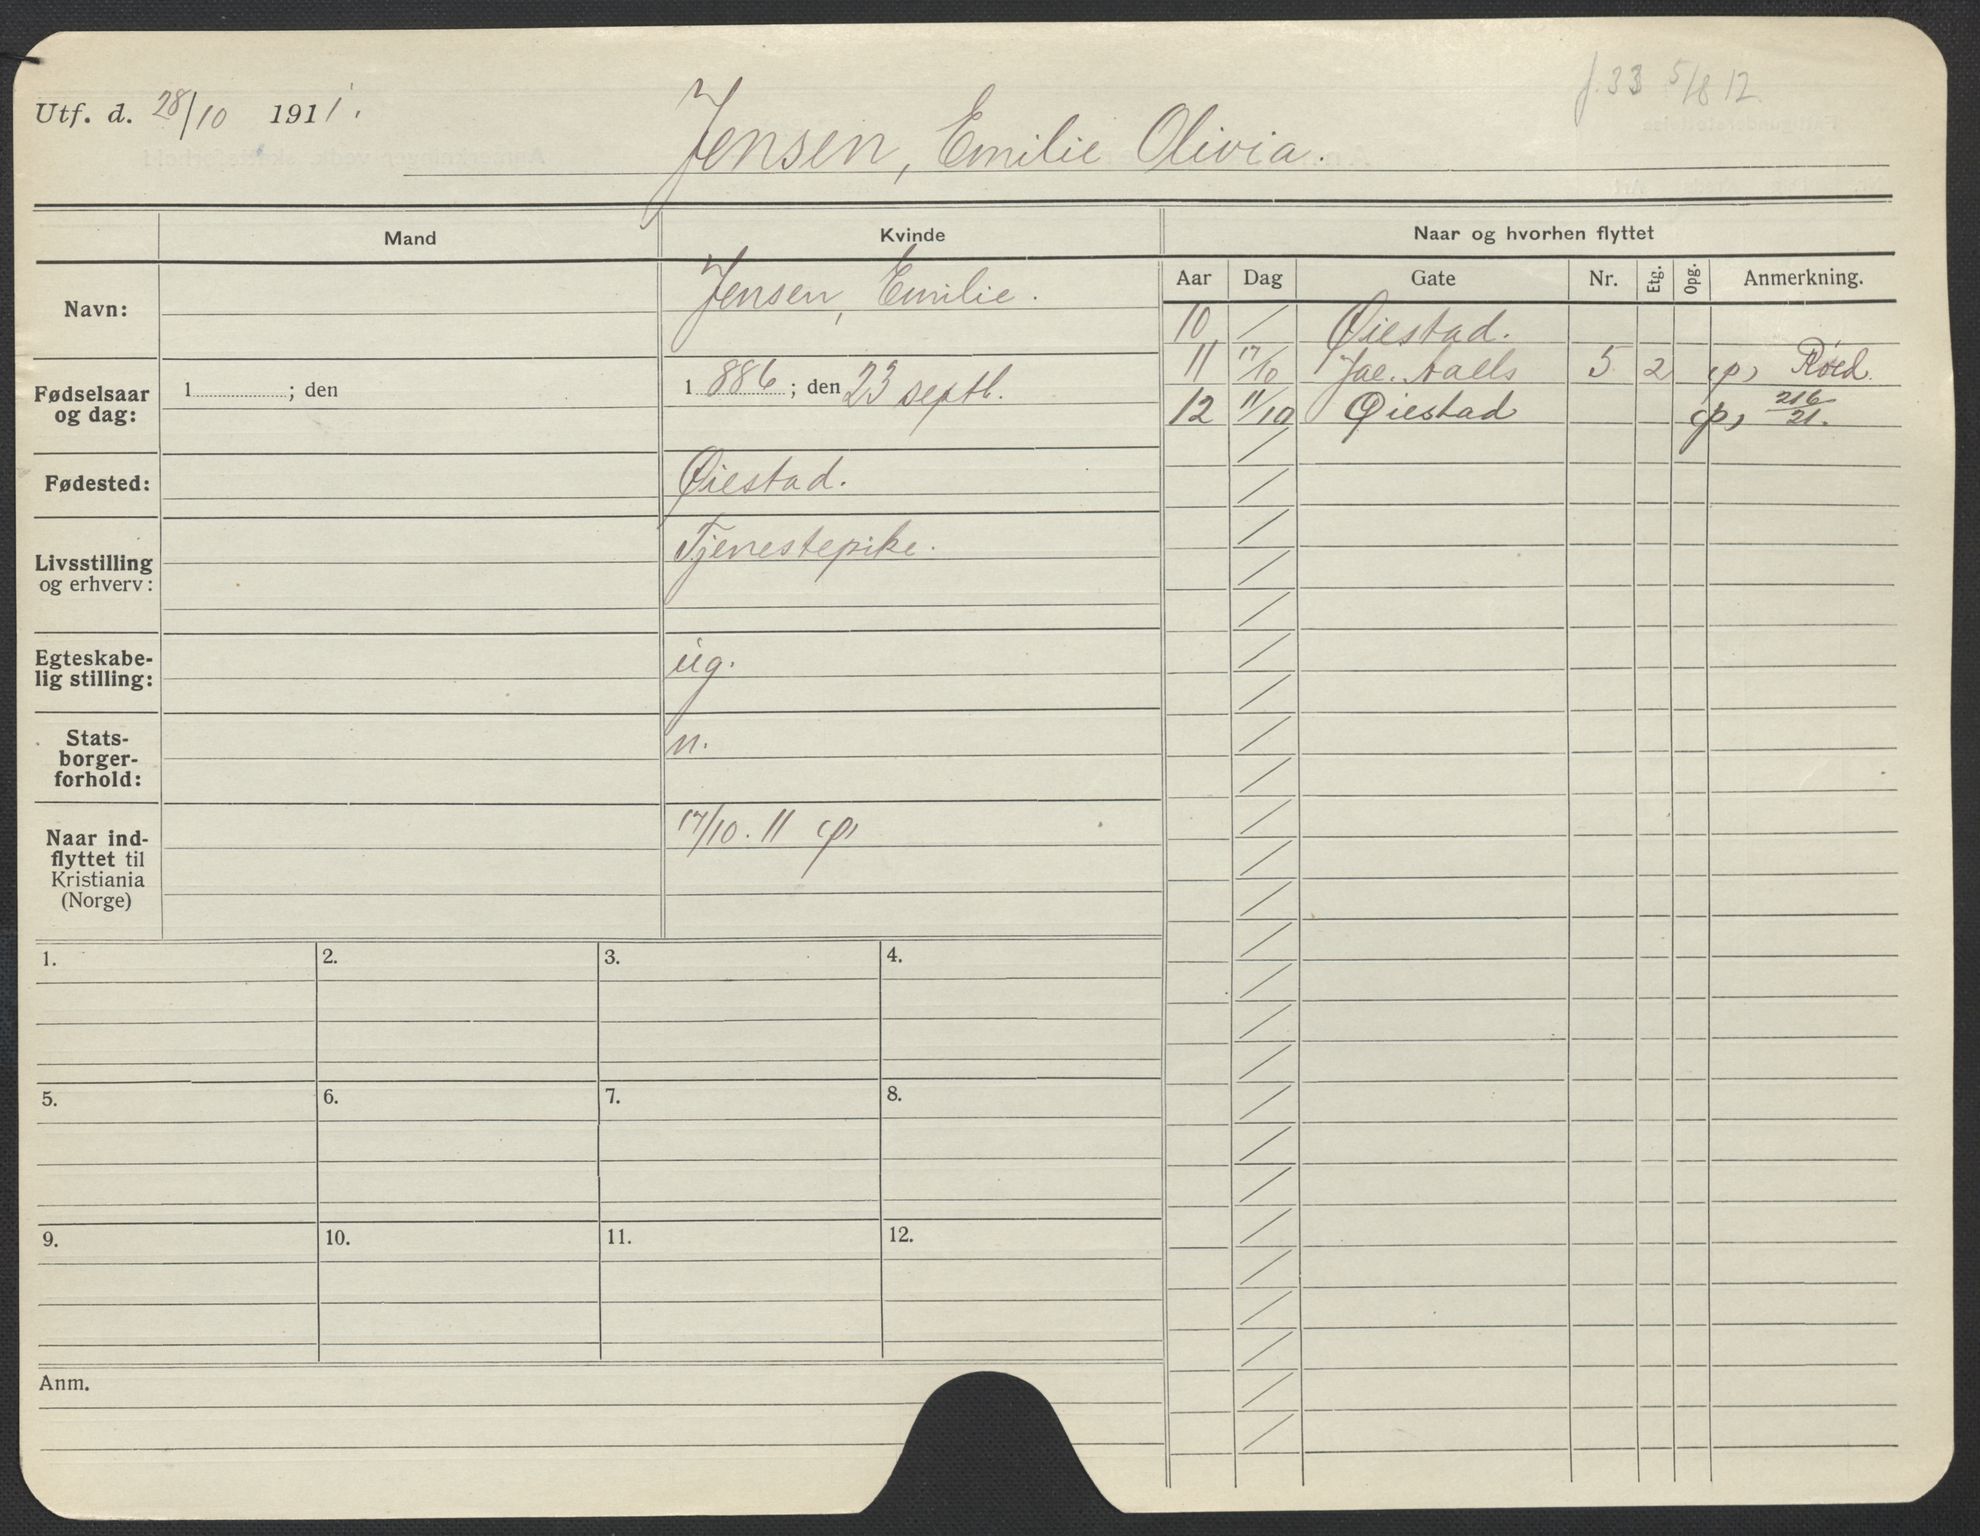 Utf. d. 28/10 1911.
Jensen, Emilie Olivia.
j. 33 5/8 12
Mand
Kvinde
Naar og hvorhen flyttet
Aar Dag Gate Nr. Etg. Opg. Anmerkning.
Navn:
Jensen, Emilie.
10 / Øiestad.
11 17/10 Jac. Aalls 5 2 (p) Røed.
12 11/10 Øiestad (p) 216/21.
Fødselsaar
og dag:
1 ; den
1 886 ; den 23 septb.
Fødested:
Øiestad.
Livsstilling
og erhverv:
Tjenestepike.
Egteskabe-
lig stilling:
ug.
Stats-
borger-
forhold:
n.
Naar ind-
flyttet til
Kristiania
(Norge)
17/10. 11 (p)
1. 2. 3. 4.
5. 6. 7. 8.
9. 10. 11. 12.
Anm.